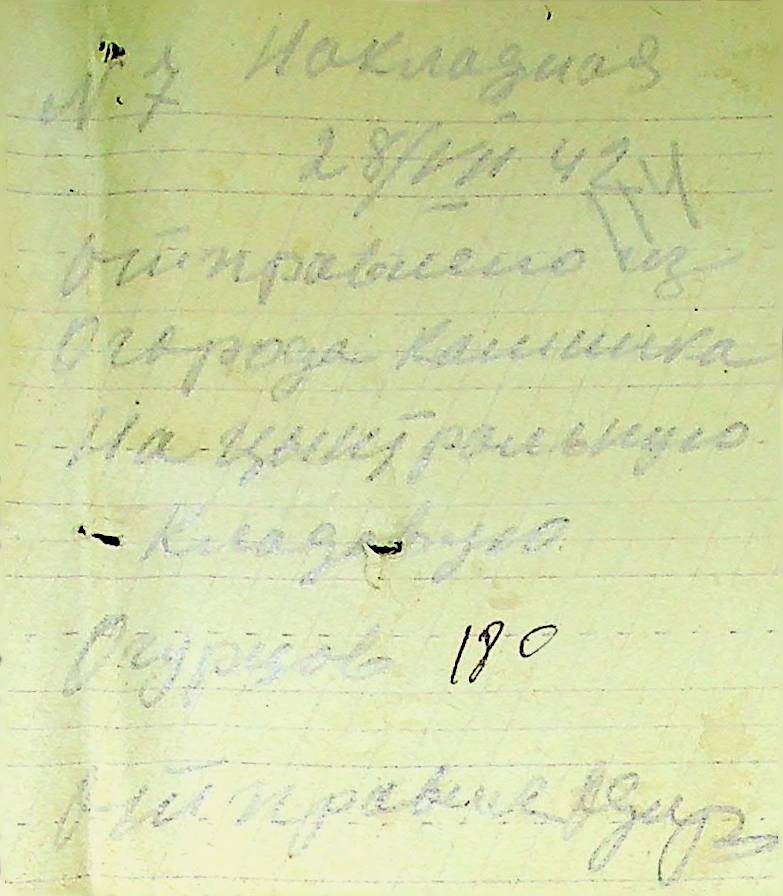 Накладная
N. 7
28/VII 42
174
отправлено из
Огорода
На цынтральную
Кладовую
Огурцов 180
отправил